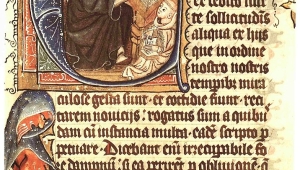 te sollicitudīs
aliqua ex hijs
que in ordine
nostro nostris
temporibꝫ mira
culose gesta sunt et cottidie sunt re-
tarem novicijs. rogatus sum a quibꝰ
dam cū instancia multa. eadē scripto p̱
petuare. Dicebant em̄ irrecuꝑabile fo
re dampnū. si ea perirēt ꝑ oblivionē